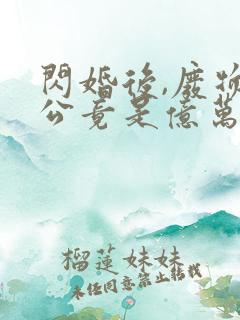 閃婚後,廢物
公竟是億萬
榴蓮妹妹
未经同意禁止转载